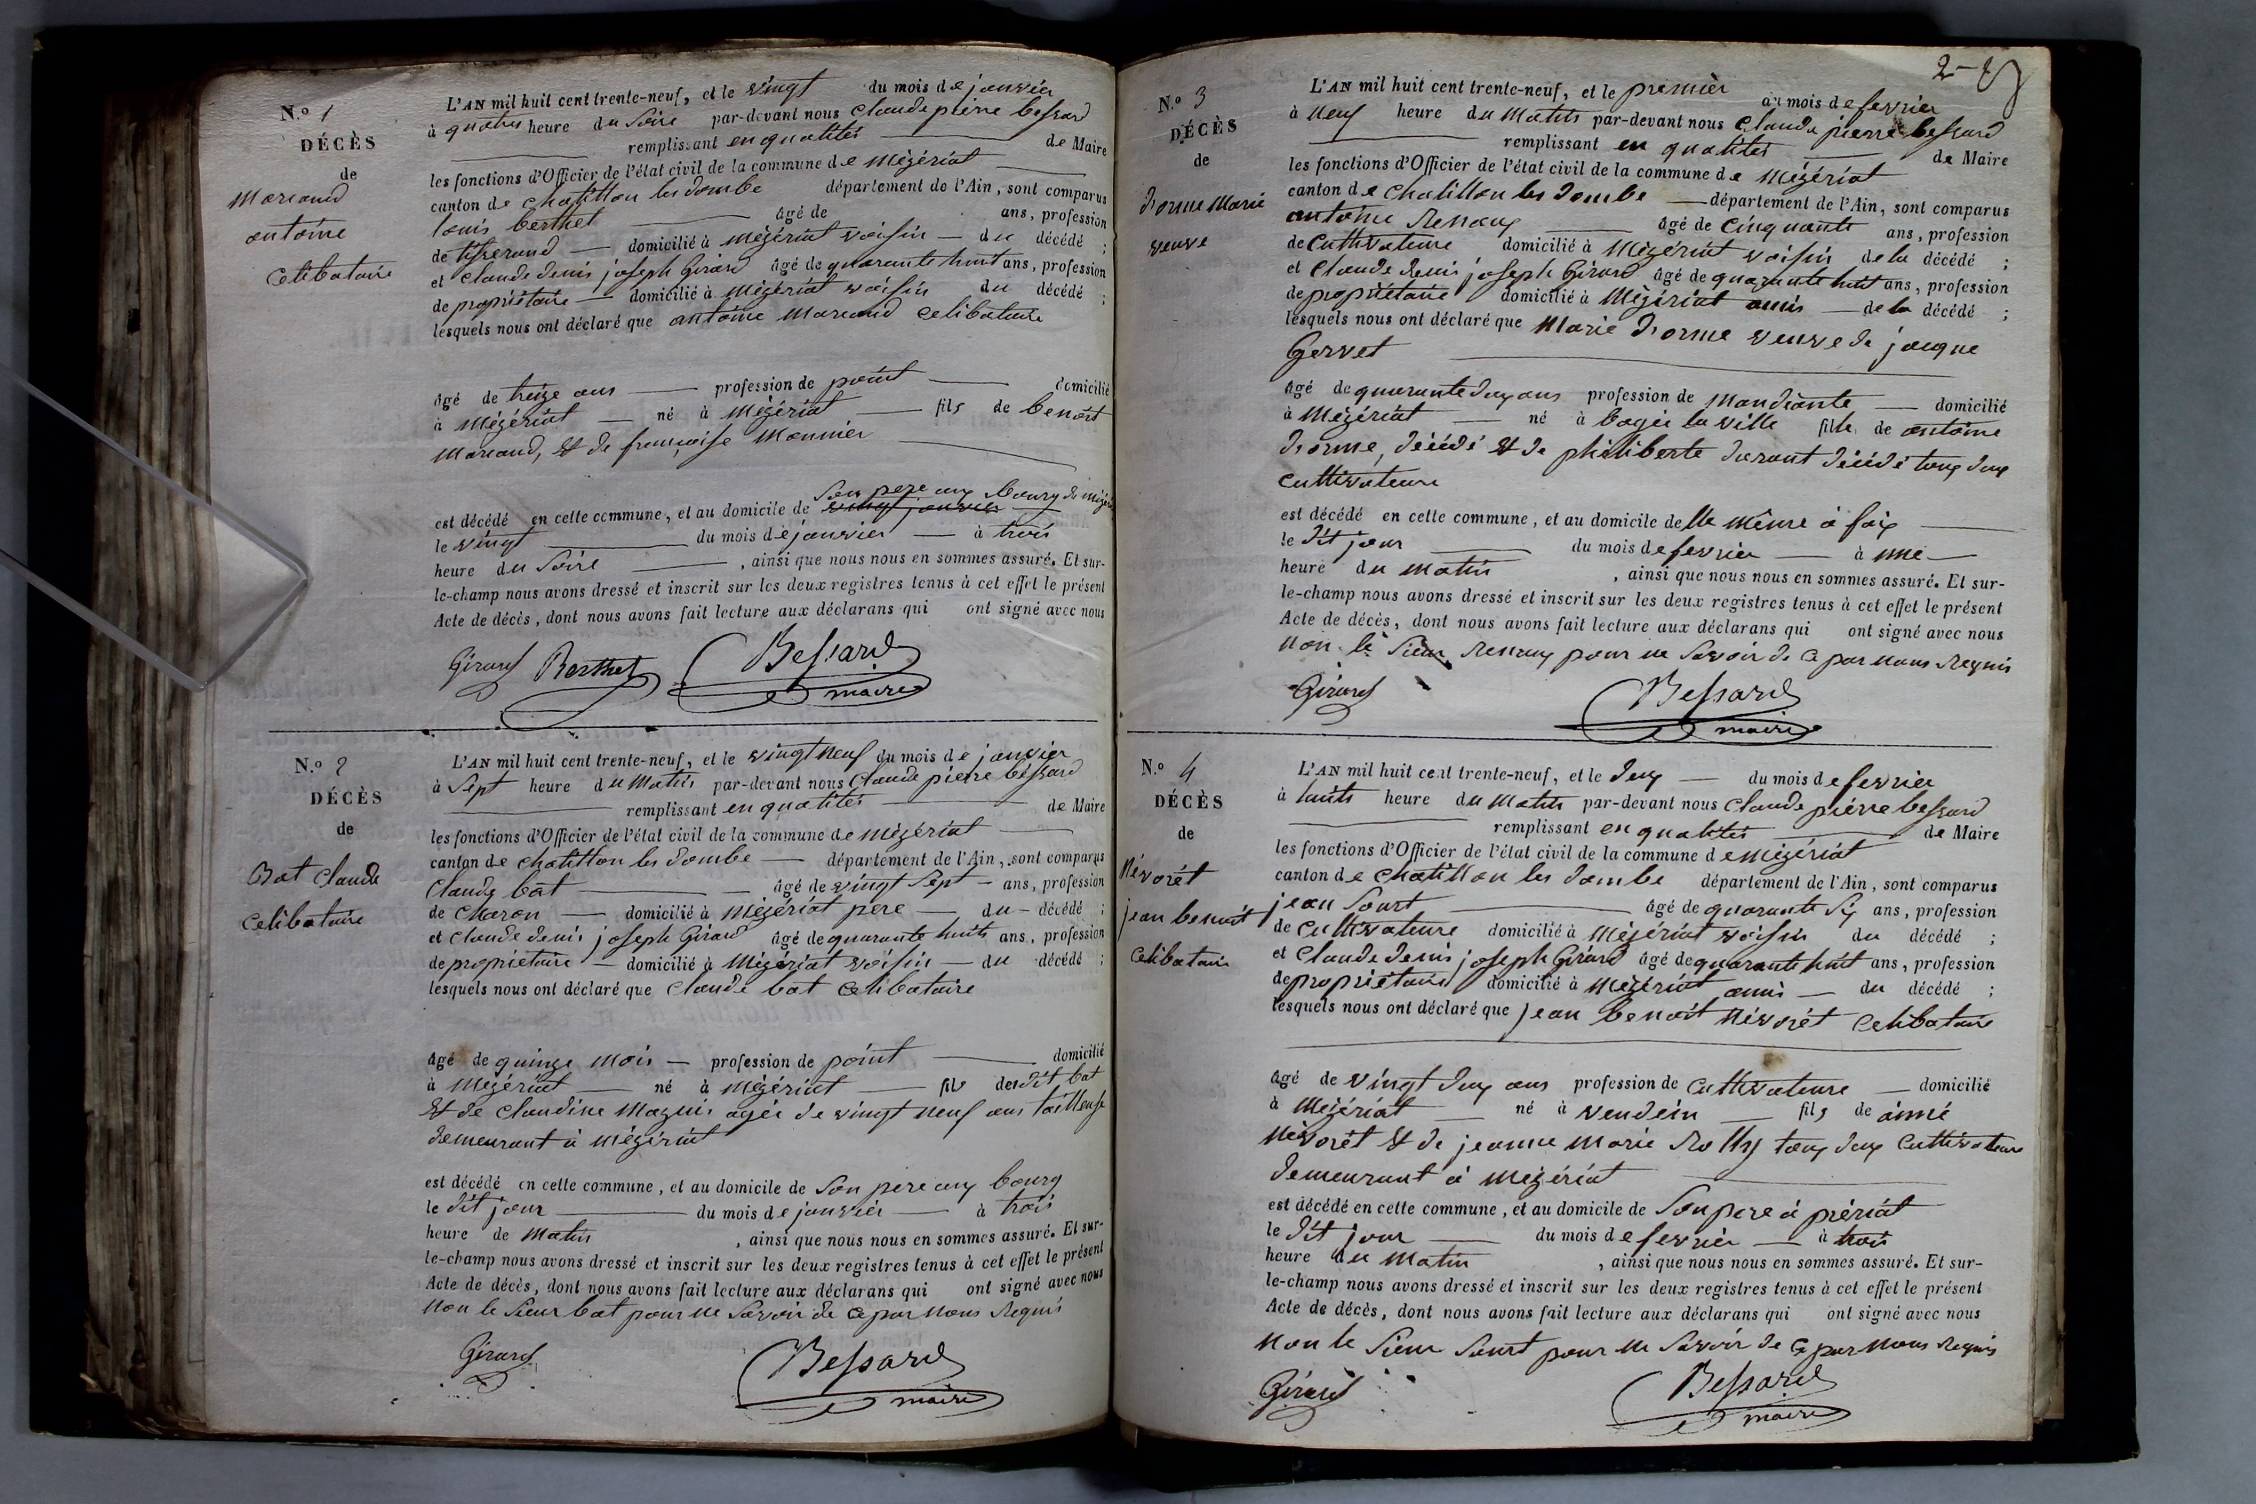 N.o 1
DÉCÈS
de
Marcaud
antoine
Celibataire
L'AN mil huit cent trente-neuf, et le vingt du mois de janvier
à quatres heure du Soire par-devant nous Claude pierre bessard
remplissant en qualités de Maire
les fonctions d'Officier de l'état civil de la commune de Mézériat
canton de Chatillon les dombe département de l'Ain, sont comparus
louis berthet âgé de ans, profession
de tisserand domicilié à Mézériat voisin du décédé ;
et Claude denis joseph Girard âgé de quarante huit ans, profession
de propriétaire domicilié à Mézériat voisin du décédé ;
lesquels nous ont déclaré que antoine Marcaud Celibataire
âgé de treize ans profession de point domicilié
à Mézériat né à Mézériat fils de benoit
Marcaud, et de françoise Monnier
Son pere aux bourg de mézériat
est décédé en cette commune, et au domicile de vingt janvier
le vingt du mois de janvier à trois
heure du Soire , ainsi que nous nous en sommes assuré. Et sur-
le-champ nous avons dressé et inscrit sur les deux registres tenus à cet effet le présent
Acte de décès, dont nous avons fait lecture aux déclarans qui ont signé avec nous
Girard Berthet Bessard
maire
N.o 2
DÉCÈS
de
Bat Claude
Celibataire
L'AN mil huit cent trente-neuf, et le vingt neuf du mois de janvier
à Sept heure du Matin par-devant nous Claude pierre bessard
remplissant en qualités de Maire
les fonctions d'Officier de l'état civil de la commune de Mézériat
canton de Chatillon les dombe département de l'Ain, sont comparus
Claude bat âgé de vingt Sept ans, profession
de Charon domicilié à Mézériat pere du décédé ;
et Claude denis joseph Girard âgé de quarante huits ans, profession
de propriétaire domicilié à Mézériat voisin du décédé ;
lesquels nous ont déclaré que Claude bat Celibataire
âgé de quinze mois profession de point domicilié
à Mézériat né à Mézériat fils de dit bat
et de Claudine Maguis agée de vingt neuf ans tailleuse
demeurant à Mézériat
est décédé en cette commune, et au domicile de Son pere aux bourg
le dit jour du mois de janvier à trois
heure de matin , ainsi que nous nous en sommes assuré. Et sur-
le-champ nous avons dressé et inscrit sur les deux registres tenus à cet effet le présent
Acte de décès, dont nous avons fait lecture aux déclarans qui ont signé avec nous
Non le Sieur bat pour ne Savoir de ce par nous Requis
Girard Bessard
maire
2
N.o 3
DÉCÈS
de
Dorme Marie
veuve
L'AN mil huit cent trente-neuf, et le premièr du mois de fevrier
à neuf heure du Matin par-devant nous Claude pierre bessard
remplissant en qualités de Maire
les fonctions d'Officier de l'état civil de la commune de Mézériat
canton de Chatillon les dombe département de l'Ain, sont comparus
antoine Renoux âgé de Cinquante ans, profession
de Cultivateure domicilié à Mézériat voisin de la décédé ;
et Claude denis joseph Girard âgé de quarante huit ans, profession
de propriétaire domicilié à Mézériat amis de la décédé ;
lesquels nous ont déclaré que Marie Dorme veuve de jacque
Gervet
âgé de quarante deux ans profession de Mandiante domicilié
à Mézériat né à bagée la ville fille de antoine
Dorme, décédé et de philiberte durant décédé toux deux
Cultivateure
est décédé en cette commune, et au domicile de lle même à faix
le dit jour du mois de fevrier à une
heure du matin , ainsi que nous nous en sommes assuré. Et sur-
le-champ nous avons dressé et inscrit sur les deux registres tenus à cet effet le présent
Acte de décès, dont nous avons fait lecture aux déclarans qui ont signé avec nous
Non le Sieur Renoux pour ne Savoir de ce par nous Requis
Girard Bessard
maire
N.o 4
DÉCÈS
de
Névorét
jean benoit
Celibataire
L'AN mil huit cent trente-neuf, et le deux du mois de fevrier
à huits heure du Matin par-devant nous Claude pierre bessard
remplissant en qualités de Maire
les fonctions d'Officier de l'état civil de la commune de Mézériat
canton de Chatillon les dombe département de l'Ain, sont comparus
jean Sourt âgé de quarante Six ans, profession
de Cultivateure domicilié à Mézériat voisin du décédé ;
et Claude denis joseph Girard âgé de quarante huit ans, profession
de propriétaire domicilié à Mézériat amis du décédé ;
lesquels nous ont déclaré que jean benoit Névorét Celibataire
âgé de vingt deux ans profession de Cultivateure domicilié
à Mézériat né à vendein fils de aimé
Névorét et de jeanne Marie Rollis toux deux Cultivateure
demeurant à Mézériat
est décédé en cette commune, et au domicile de Son pere à prériat
le dit jour du mois de fevrier à trois
heure du Matin , ainsi que nous nous en sommes assuré. Et sur-
le-champ nous avons dressé et inscrit sur les deux registres tenus à cet effet le présent
Acte de décès, dont nous avons fait lecture aux déclarans qui ont signé avec nous
Non le Sieur Sourt pour ne Savoir de ce par nous Requis
Girard Bessard
maire